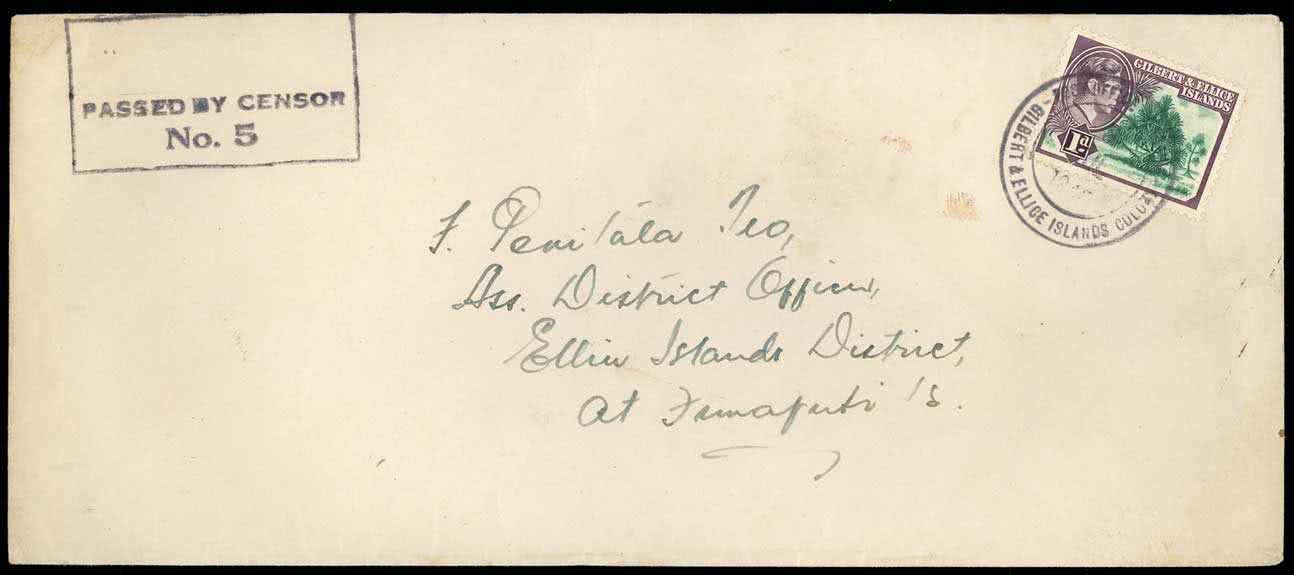 PASSED BY CENSOR
No. 5
GILBERT & ELLICE
ISLANDS
1d
GILBERT & ELLICE ISLANDS COLO
F. Penitala Teo,
Ass. District Officer,
Ellice Islands District,
at Funafuti Is.